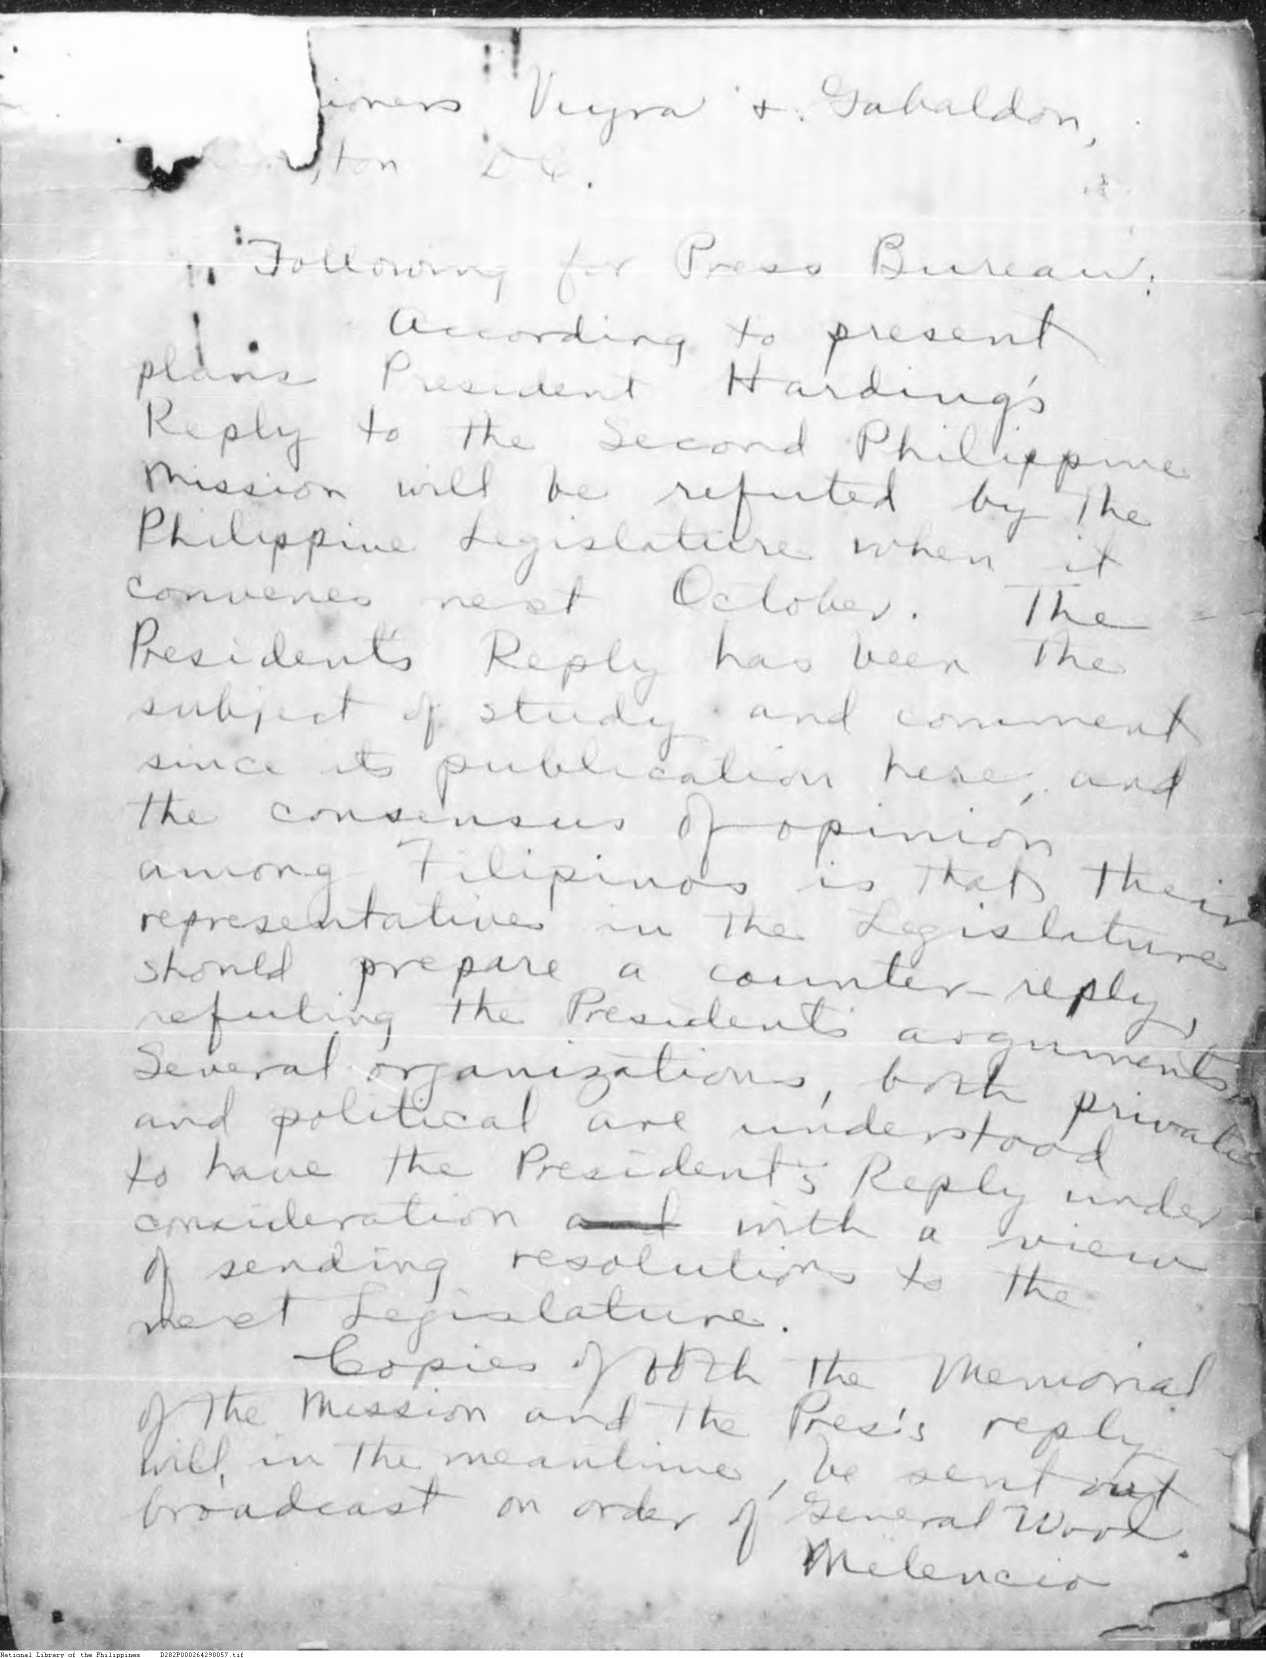 ioners Veyra & Gabaldon,
ton DC.
Following for Press Bureau:
According to present
plans President Harding's
Reply to the Second Philippine
Mission will be refuted by the
Philippine Legislature when it
convenes next October. The
President's Reply has been the
subject of study and comment
since its publication here, and
the consensus of opinion
among Filipinos is that their
representatives in the Legislature
should prepare a counter-reply,
refuting the President's arguments.
Several organizations, both private
and political are understood
to have the President's Reply under
consideration and with a view
of sending resolutions to the
next Legislature.
Copies of both the Memorial
of the Mission and the Pres's reply
will, in the meantime, be sent out
broadcast on order of General Wood.
Melencio
National Library of the Philippines D282P000264298057.tif